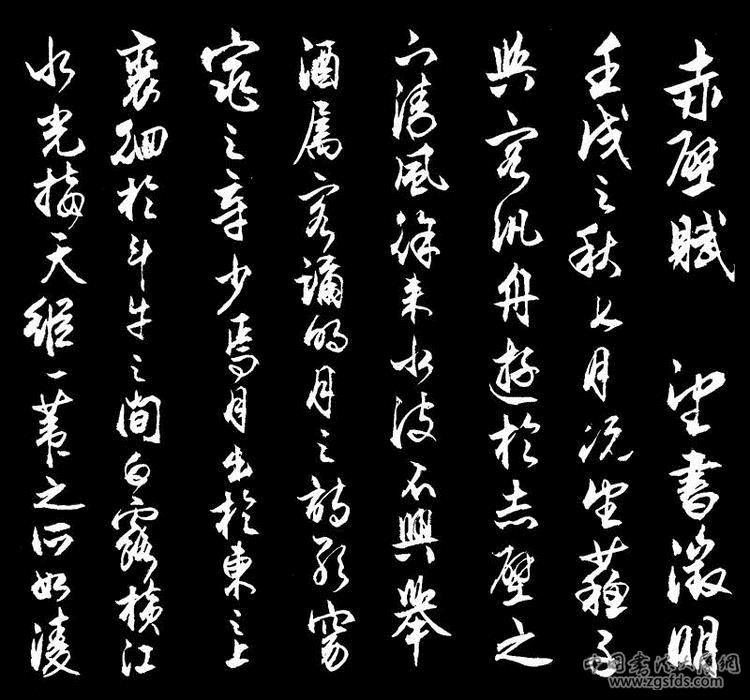 赤壁賦 書徵明
壬戌之秋七月既望蘇子
與客汎舟遊於赤壁之
下清風徐來水波不興舉
酒屬客誦明月之詩歌窈
窕之章少焉月出於東之上
裴徊於斗牛之間白露橫江
水光接天縱一葦之所如凌
中国书法大师网
www.zgsfds.com